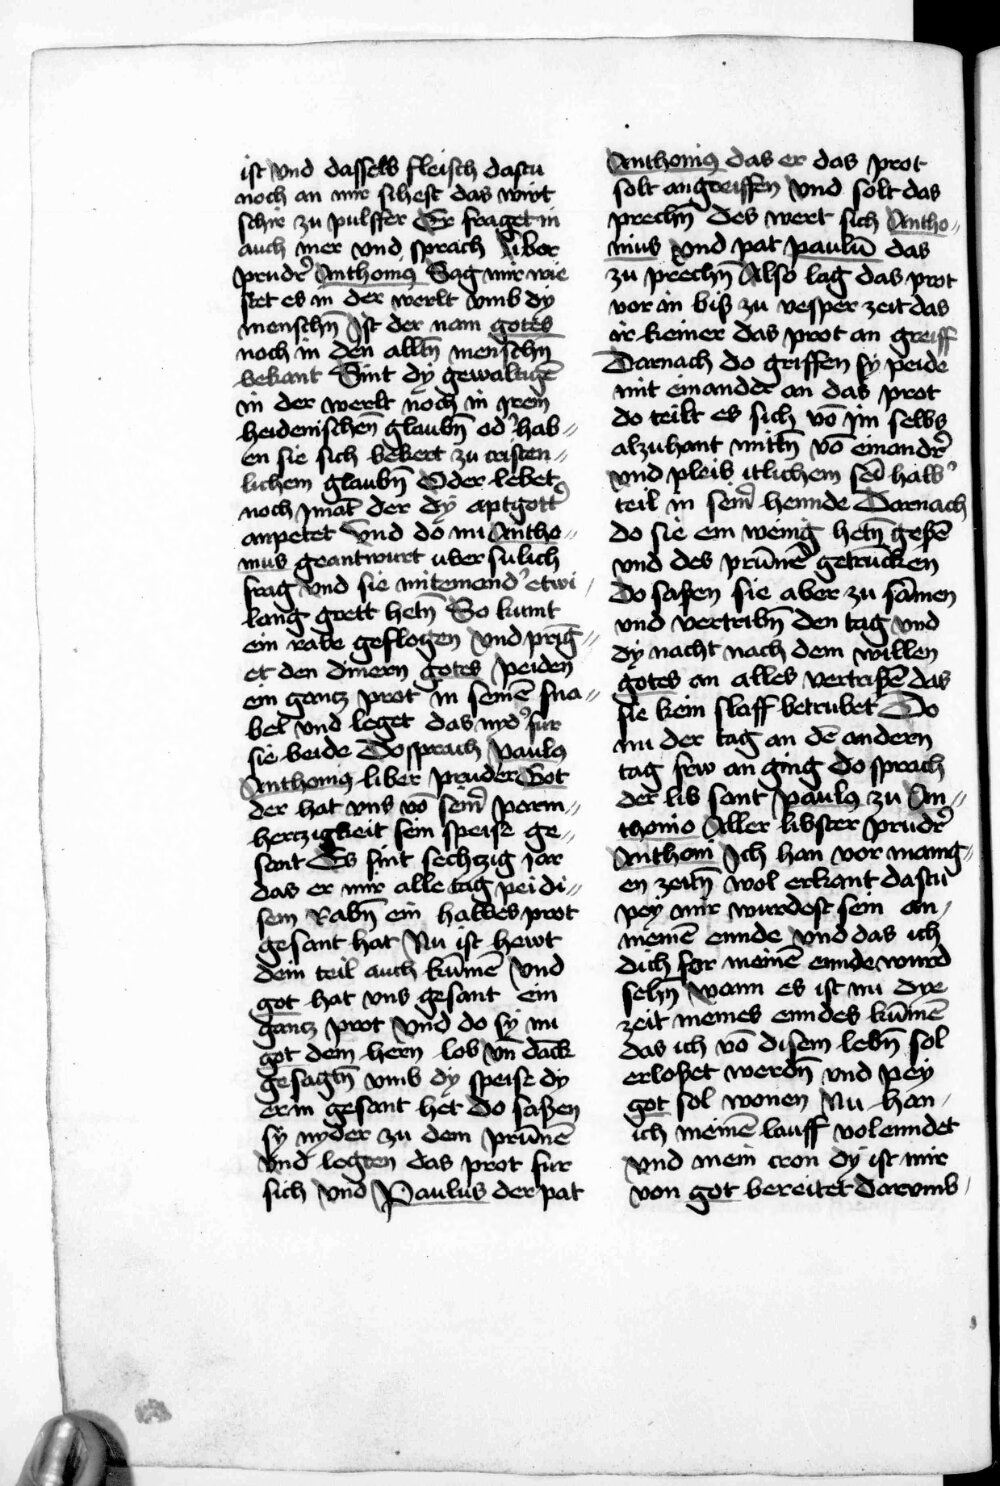 ist vnd dasselb fleisch dastu
noch an mir sihest das wirt
schir zu pulffer Er fraget in
auch mer vnd sprach liber
prudr̉ Anthonius Sag mir wie
stet es in der werlt vmb dy
menschn̄ Ist der nam gotes
noch in den alltn̄ menschn̄
bekant Sint dy gewaltigē
in der werlt noch in irem
heidenischen̄ glaubn̄ od̉ hab⸗
en sie sich bekert zu cristen⸗
lichem glaubn̄ Oder lebet
noch ymāt der dy aptgött̉
anpetet Vnd do nu Antho⸗
nius geantwurt vber sulich
frag vnd sie mitemand̉ etwi
lang grett hetn̄ So kumt
ein rabe geflogen vnd prīg⸗
et den dinern gotes peiden
ein gancz prot in seinē sna⸗
bel vnd leget das nyd̉ fur
sie beide Do sprach Paulus
Anthonius liber pruder Got
der hat vns vō seinr̉ parm⸗
herczigkeit sein speise ge⸗
sant Es sint sechczig jar
das er mir alle tag pei di⸗
sem Rabn̄ ein halbes prot
gesant hat Nu ist hewt
dein teil auch kūmē vnd
got hat vns gesant ein
gancz prot Vnd do sy nu
got dem hern lob vn̄ danck
gesagtn̄ vmb dy speise dy
er in gesant het do saßen
sy nyder zu dem prūnē
vnd legten das prot fur
sich vnd Paulus der pat
Anthonius das er das prot
solt angreiffen vnd solt das
prechn̄ Des wert sich Antho⸗
nius vnd pat paulū das
zu prechn̄ Also lag das prot
vor in biß zu vesper zeit das
ir keiner das prot an greiff
Darnach do griffen sy peide
mit einander an das prot
do teilt es sich vō im selbs
alzuhant mittn̄ vō einandr̉
vnd pleib itlichem sei halb̉
teil in seinr̉ hennde Darnach
do sie ein wenig hetn̄ geßē
vnd des prūnē getruncken
Do saßen sie aber zu sāmen
vnd vertribn̄ den tag vnd
dy nacht nach dem willen
gotes an alles vertrißē das
sie kein slaff betrubet Do
nu der tag an dē andern
tag frw an ging do sprach
der lib sant paulus zu An⸗
thonio Aller libster prudr̉
Anthoni Ich han vor manig⸗
en zeitn̄ wol erkant dastu
pey mir wurdest sein an
meinē ennde vnd das ich
dich for meinē ennde wurd
sehn̄ wann es ist nu dye
zeit meines enndes kūmē
das ich vō disem lebn̄ sol
erloßet werdn̄ vnd pey
got sol wonen Nu han
ich meinē lauff volenndet
vnd mein cron dy ist mir
von got bereitet darvmb